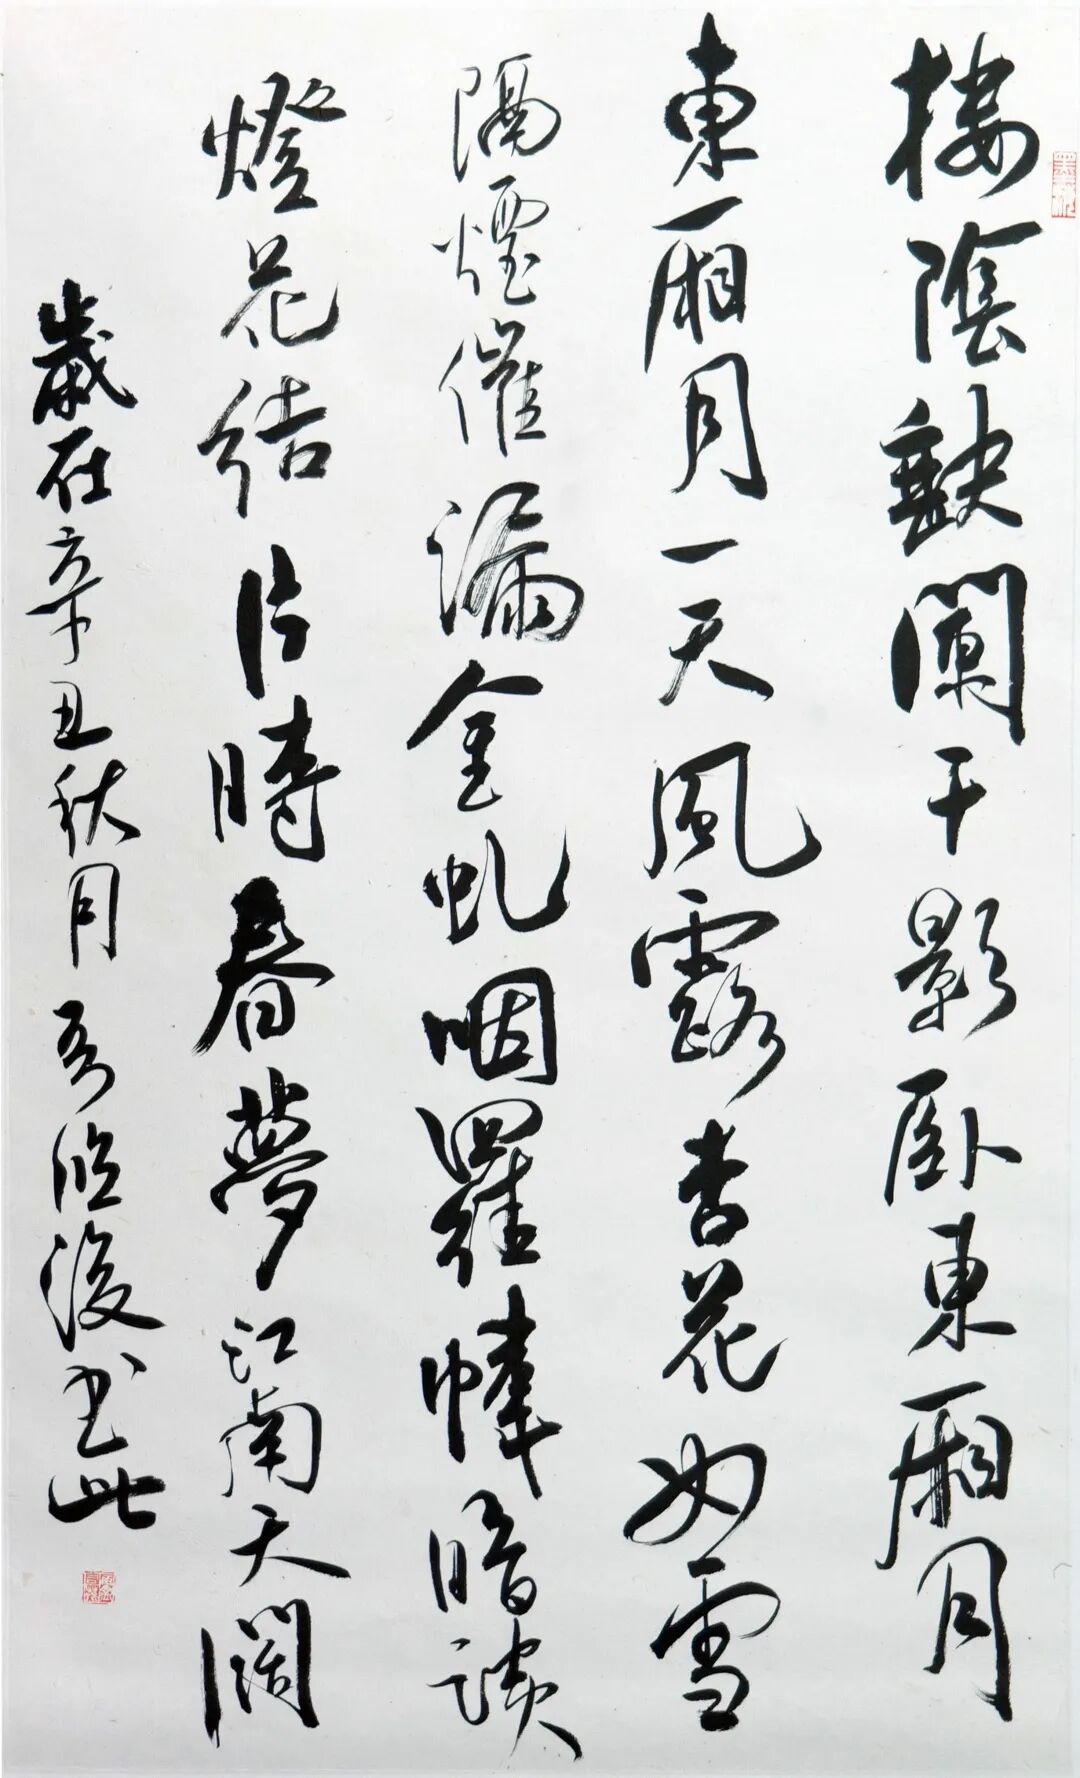 樓陰缺闌干影卧東廂月
東廂月一天風露杏花如雪
隔煙催漏金虬咽羅幃暗淡
燈花結片時春夢江南天闊
歲在辛丑秋月書此